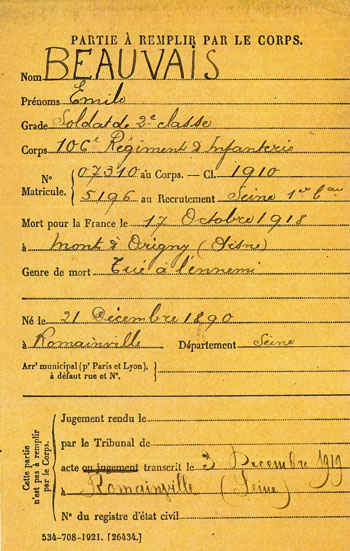 PARTIE À REMPLIR PAR LE CORPS.
Nom BEAUVAIS
Prénoms Emile
Grade Soldat de 2e classe
Corps 106e Régiment d'Infanterie
No 07310 au Corps. — Cl. 1910
Matricule. 5196 au Recrutement Seine 1er Bau
Mort pour la France le 17 Octobre 1918
à Mont d'Origny (Aisne)
Genre de mort Tué à l'ennemi
Né le 21 Décembre 1890
à Romainville Département Seine
Arrt municipal (pr Paris et Lyon),
à défaut rue et No.
Cette partie
n'est pas à remplir
par le Corps.
Jugement rendu le
par le Tribunal de
acte ou jugement transcrit le 3 Decembre 1919
à Romainville (Seine)
No du registre d'état civil
534-708-1921. [26434.]